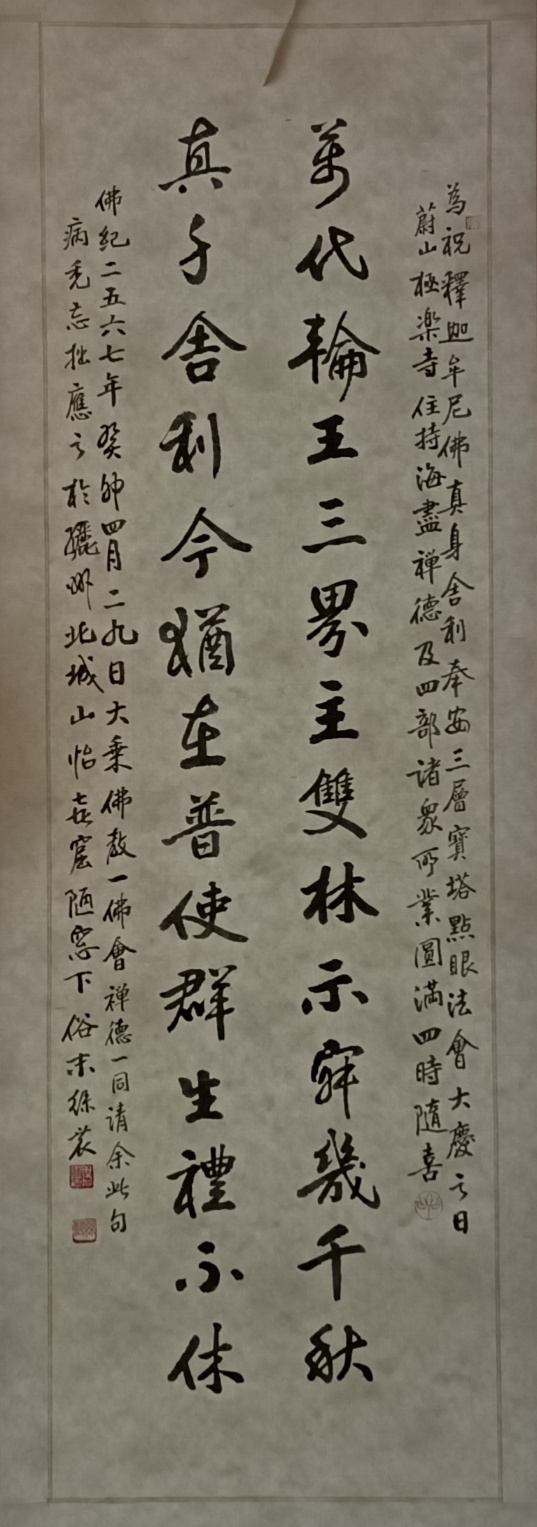 為祝釋迦牟尼佛真身舍利奉安三層寶塔點眼法會大慶之日
蔚山極楽寺住持海盡禅德及四部諸衆所業圓滿四時隨喜
萬代輪王三界主雙林示寂幾千秋
真身舍利今猶在普使群生禮不休
佛紀二五六七年癸卯四月二九日大乗佛教一佛會禅德一同請余此句
病禿忘拙應之於驪州北城山怡喜窟陋窓下俗末